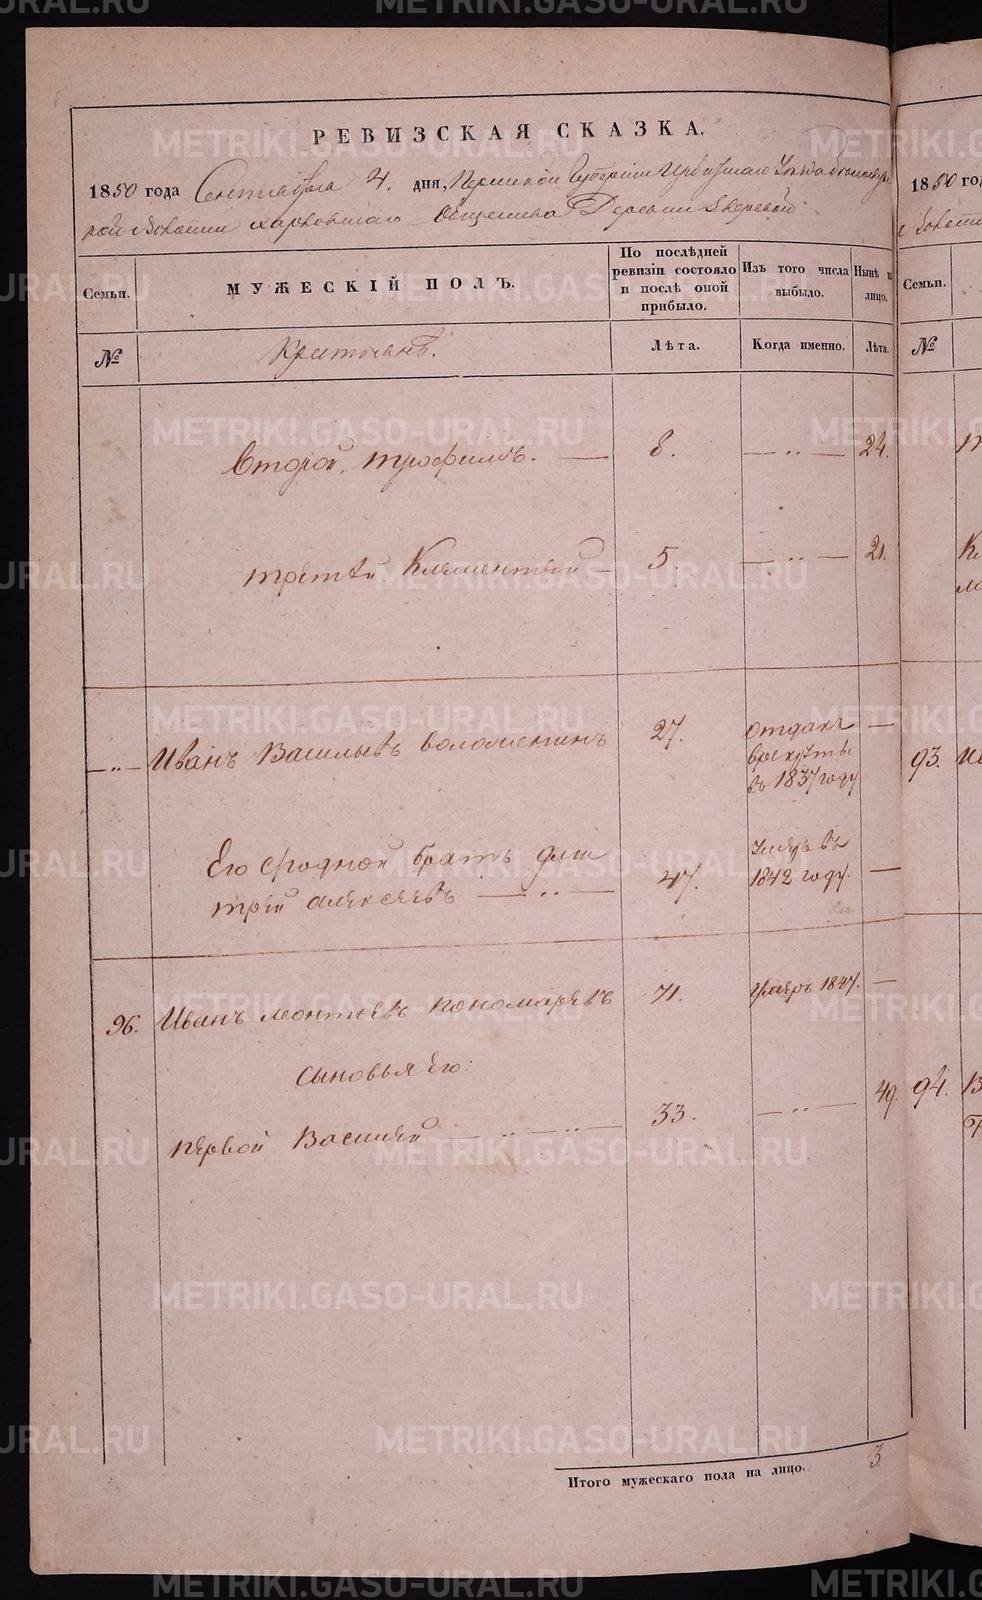 РЕВИЗСКАЯ СКАЗКА.
1850 года Сентября 4. дня, Пермской Губернии Ирбитскаго Уезда
кой Волости Харловскаго Общества Деревни
Семьи.
МУЖЕСКІЙ ПОЛЪ.
По послѣдней ревизіи состояло и послѣ оной прибыло.
Изъ того числа выбыло.
Нынѣ на лицо.
№
Крестьянъ.
Лѣта.
Когда именно.
Лѣта.
Второй, трофимъ. — 8. — „ — 24.
третей Клементей — 5. — „ — 21.
— „ — Иванъ Васильевъ воломенинъ 27. отданъ —
в рекруты
въ 1837 году
Его сродной братъ дми
трей алексеевъ — „ — 47. умеръ въ
1842 году. —
96. Иванъ леонтьевъ пономаревъ 71. умеръ 1847. —
сыновья Его:
первой Василей — „ — „ — 33. — „ — 49.
Итого мужескаго пола на лицо. 3.
1850 го
Волости
Семьи.
№
93.
94.
METRIKI.GASO-URAL.RU